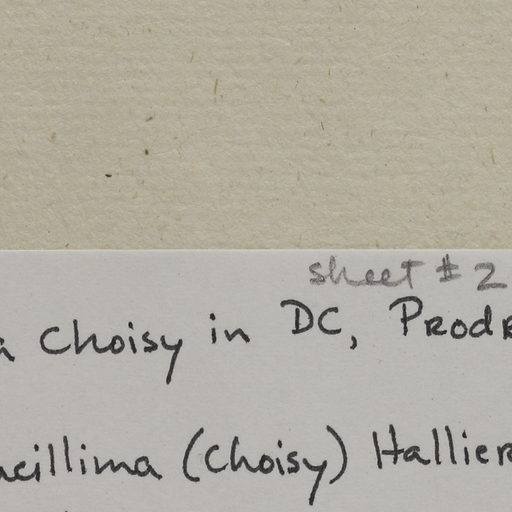 sheet # 2
a Choisy in DC, Prodr
acillima (Choisy) Hallier